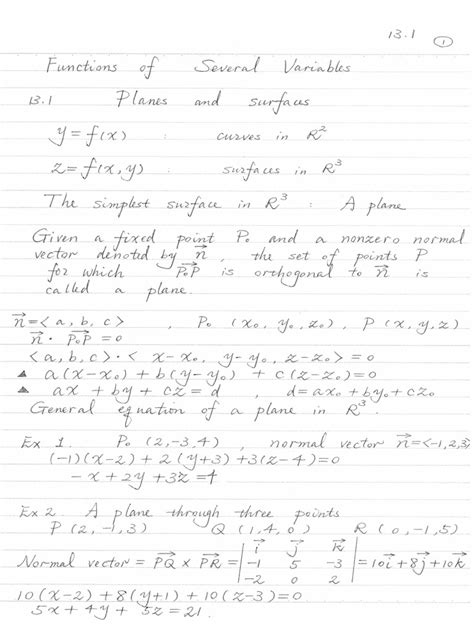 13.1 ①
Functions of Several Variables
13.1 Planes and surfaces
y = f(x) : curves in R²
z = f(x, y) : surfaces in R³
The simplest surface in R³ : A plane
Given a fixed point P₀ and a nonzero normal
vector denoted by n⃗, the set of points P
for which P₀P⃗ is orthogonal to n⃗ is
called a plane.
n⃗ = < a, b, c > , P₀ (x₀, y₀, z₀), P (x, y, z)
n⃗ · P₀P⃗ = 0
< a, b, c > · < x-x₀, y-y₀, z-z₀ > = 0
▲ a(x-x₀) + b(y-y₀) + c(z-z₀) = 0
▲ ax + by + cz = d , d = ax₀ + by₀ + cz₀
General equation of a plane in R³.
Ex 1. P₀ (2, -3, 4) , normal vector n⃗ = <-1, 2, 3>
(-1)(x-2) + 2(y+3) + 3(z-4) = 0
-x + 2y + 3z = 4
Ex 2. A plane through three points
P (2, -1, 3) Q (1, 4, 0) R (0, -1, 5)
Normal vector = PQ⃗ × PR⃗ = | i⃗ j⃗ k⃗ | = 10i⃗ + 8j⃗ + 10k⃗
| -1 5 -3 |
| -2 0 2 |
10(x-2) + 8(y+1) + 10(z-3) = 0
5x + 4y + 5z = 21.